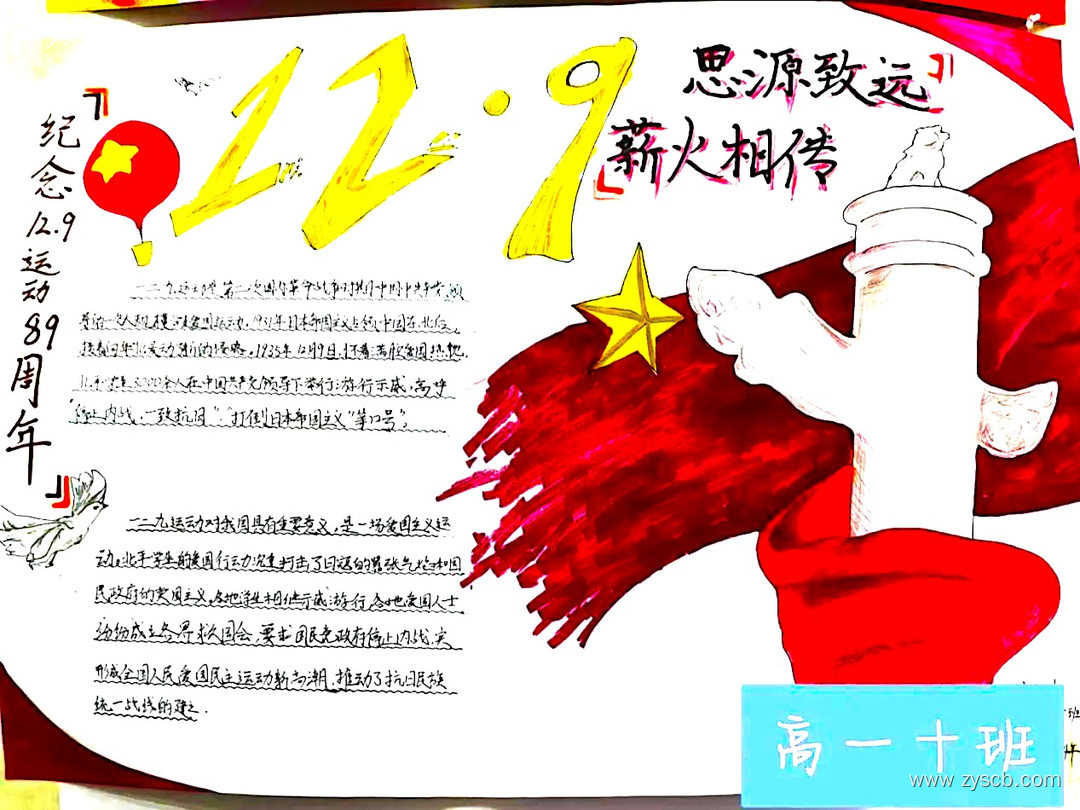 纪念12.9运动89周年
12·9
思源致远
薪火相传
一二九运动是第二次国内革命战争时期中国共产党领
导的一次大规模
爱国运动。1931年日本帝国主义占领中国东北后,
接着向华北发动新的侵略。1935年12月9日,怀着满腔爱国热忱,
北平学生3000余人在中国共产党领导下举行游行示威,高呼
“停止内战,一致抗日”,“打倒日本帝国主义”等口号。
一二九运动对我国具有重要意义,是一场爱国主义运
动。北平学生的爱国行动沉重打击了日寇的嚣张气焰和国
民政府的卖国主义。各地学生相继示威游行,各地爱国人士
纷纷成立各界救国会,要求国民党政府停止内战,
形成全国人民爱国民主运动新高潮,推动了抗日民族
统一战线的建立.
高一十班
www.zyscb.com